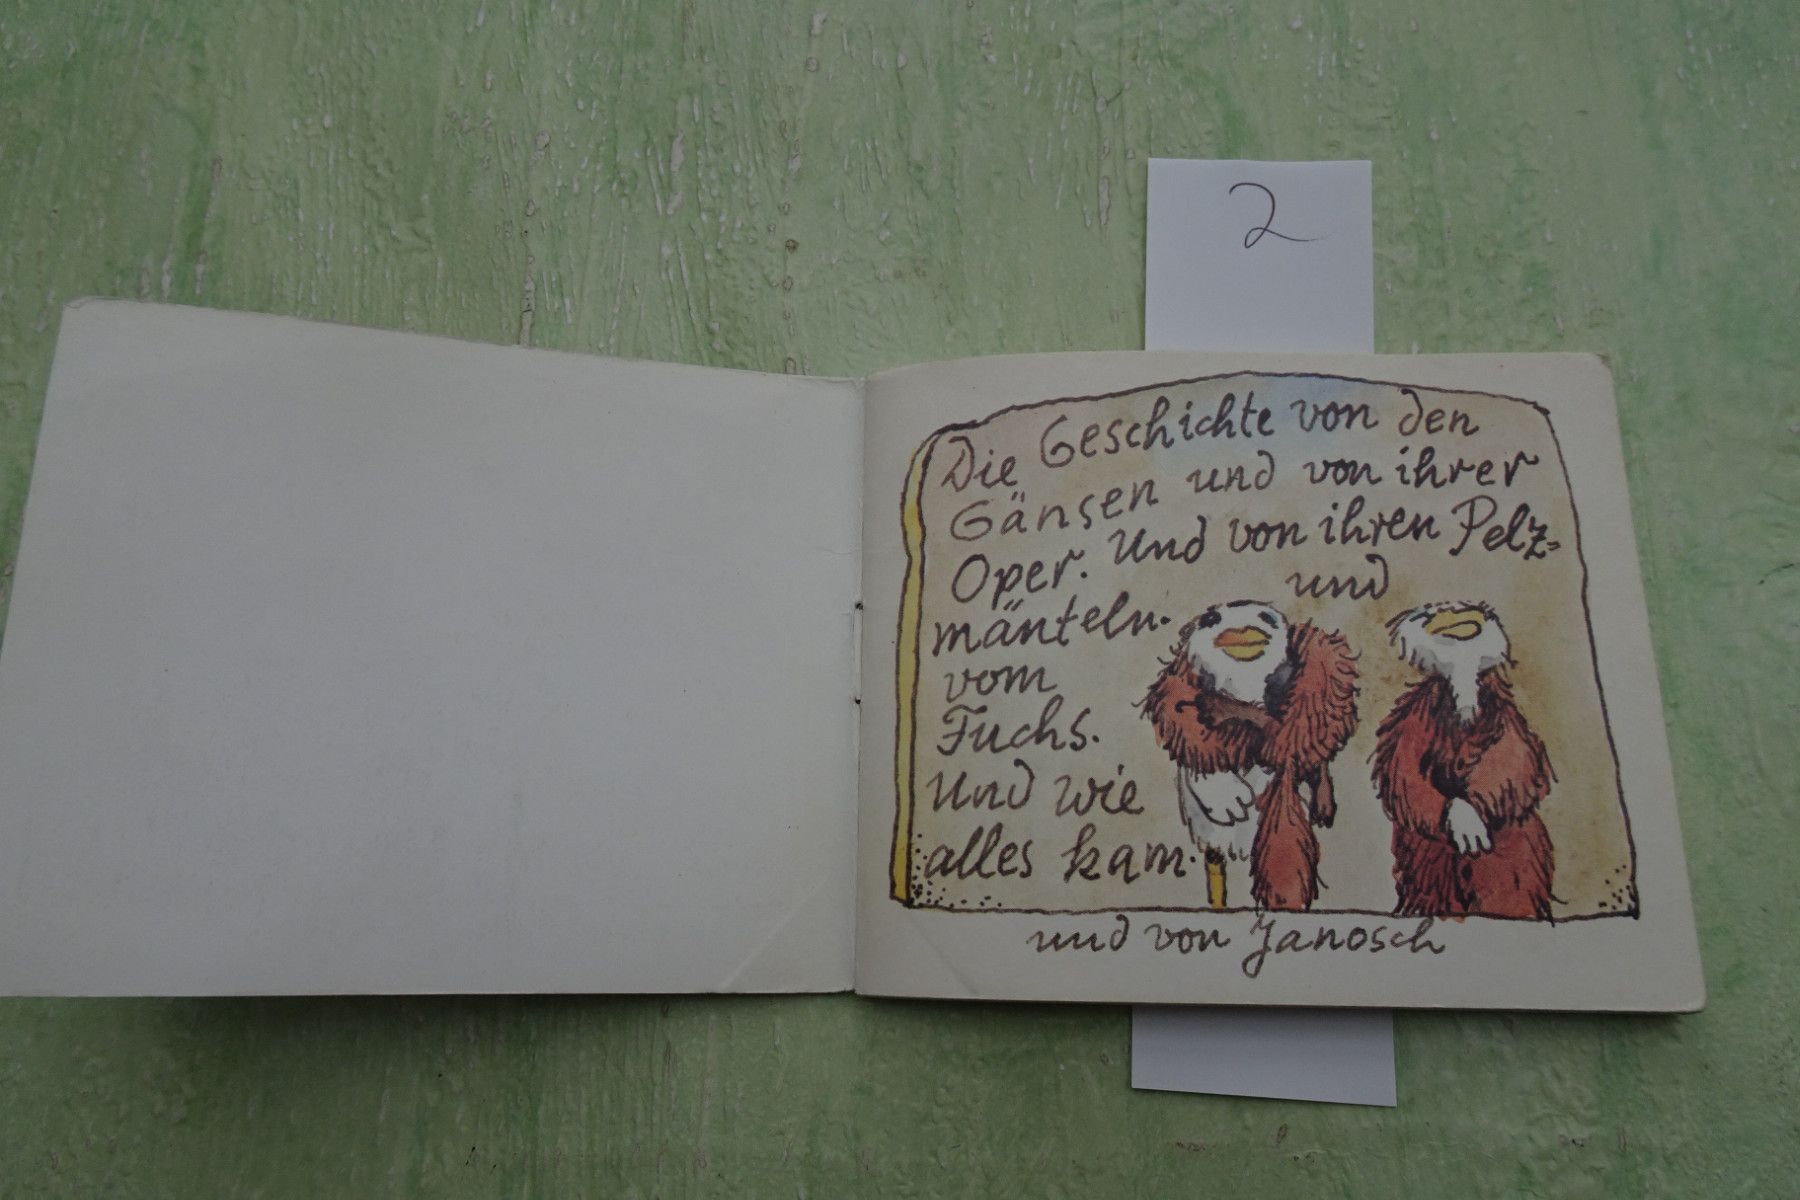 2
Die Geschichte von den
Gänsen und von ihrer
Oper. Und von ihren Pelz-
mänteln. und
vom
Fuchs.
Und wie
alles kam.
und von Janosch